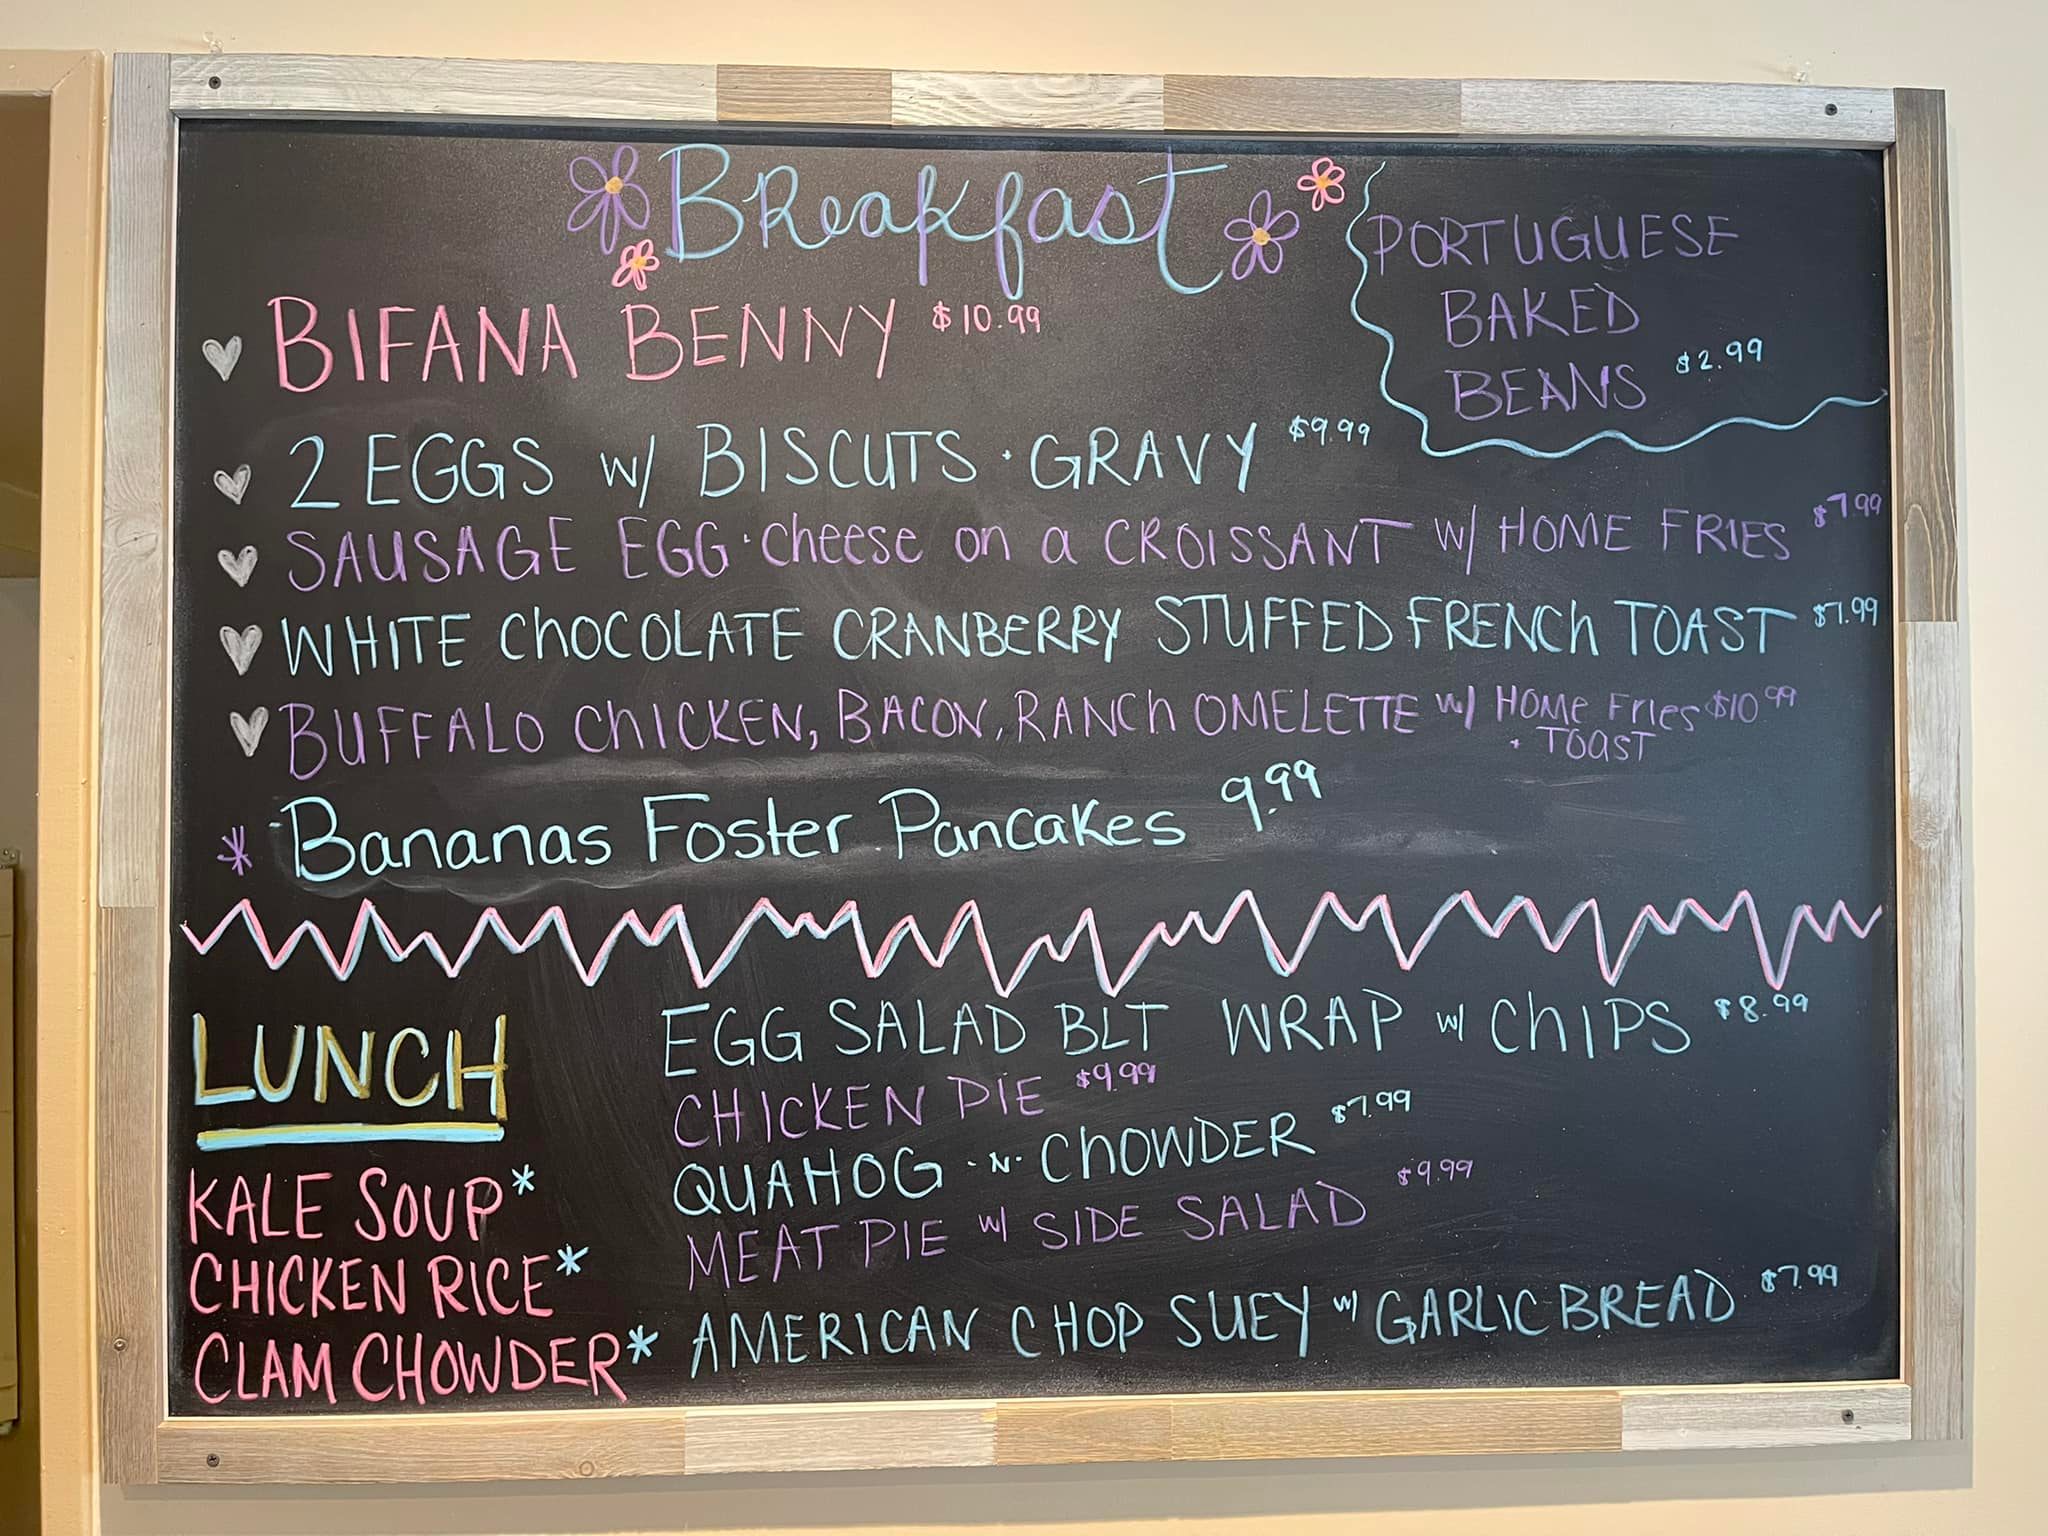 Breakfast
PORTUGUESE
BAKED
BEANS $2.99
BIFANA BENNY $10.99
2 EGGS w/ BISCUTS · GRAVY $9.99
SAUSAGE EGG · cheese on a CROISSANT w/ HOME FRIES $7.99
WHITE ChOCOLATE CRANBERRY STUFFED FRENCh TOAST $7.99
BUFFALO ChICKEN, BACON, RANCh OMELETTE w/ HOMe FrIes $10.99
+ TOAST
* Bananas Foster Pancakes 9.99
LUNCH
KALE SOUP*
CHICKEN RICE*
CLAM CHOWDER*
EGG SALAD BLT WRAP w/ ChIPS $8.99
CHICKEN PIE $9.99
QUAHOG ·N· ChOWDER $7.99
MEAT PIE w/ SIDE SALAD $9.99
AMERICAN CHOP SUEY w/ GARLIC BREAD $7.99